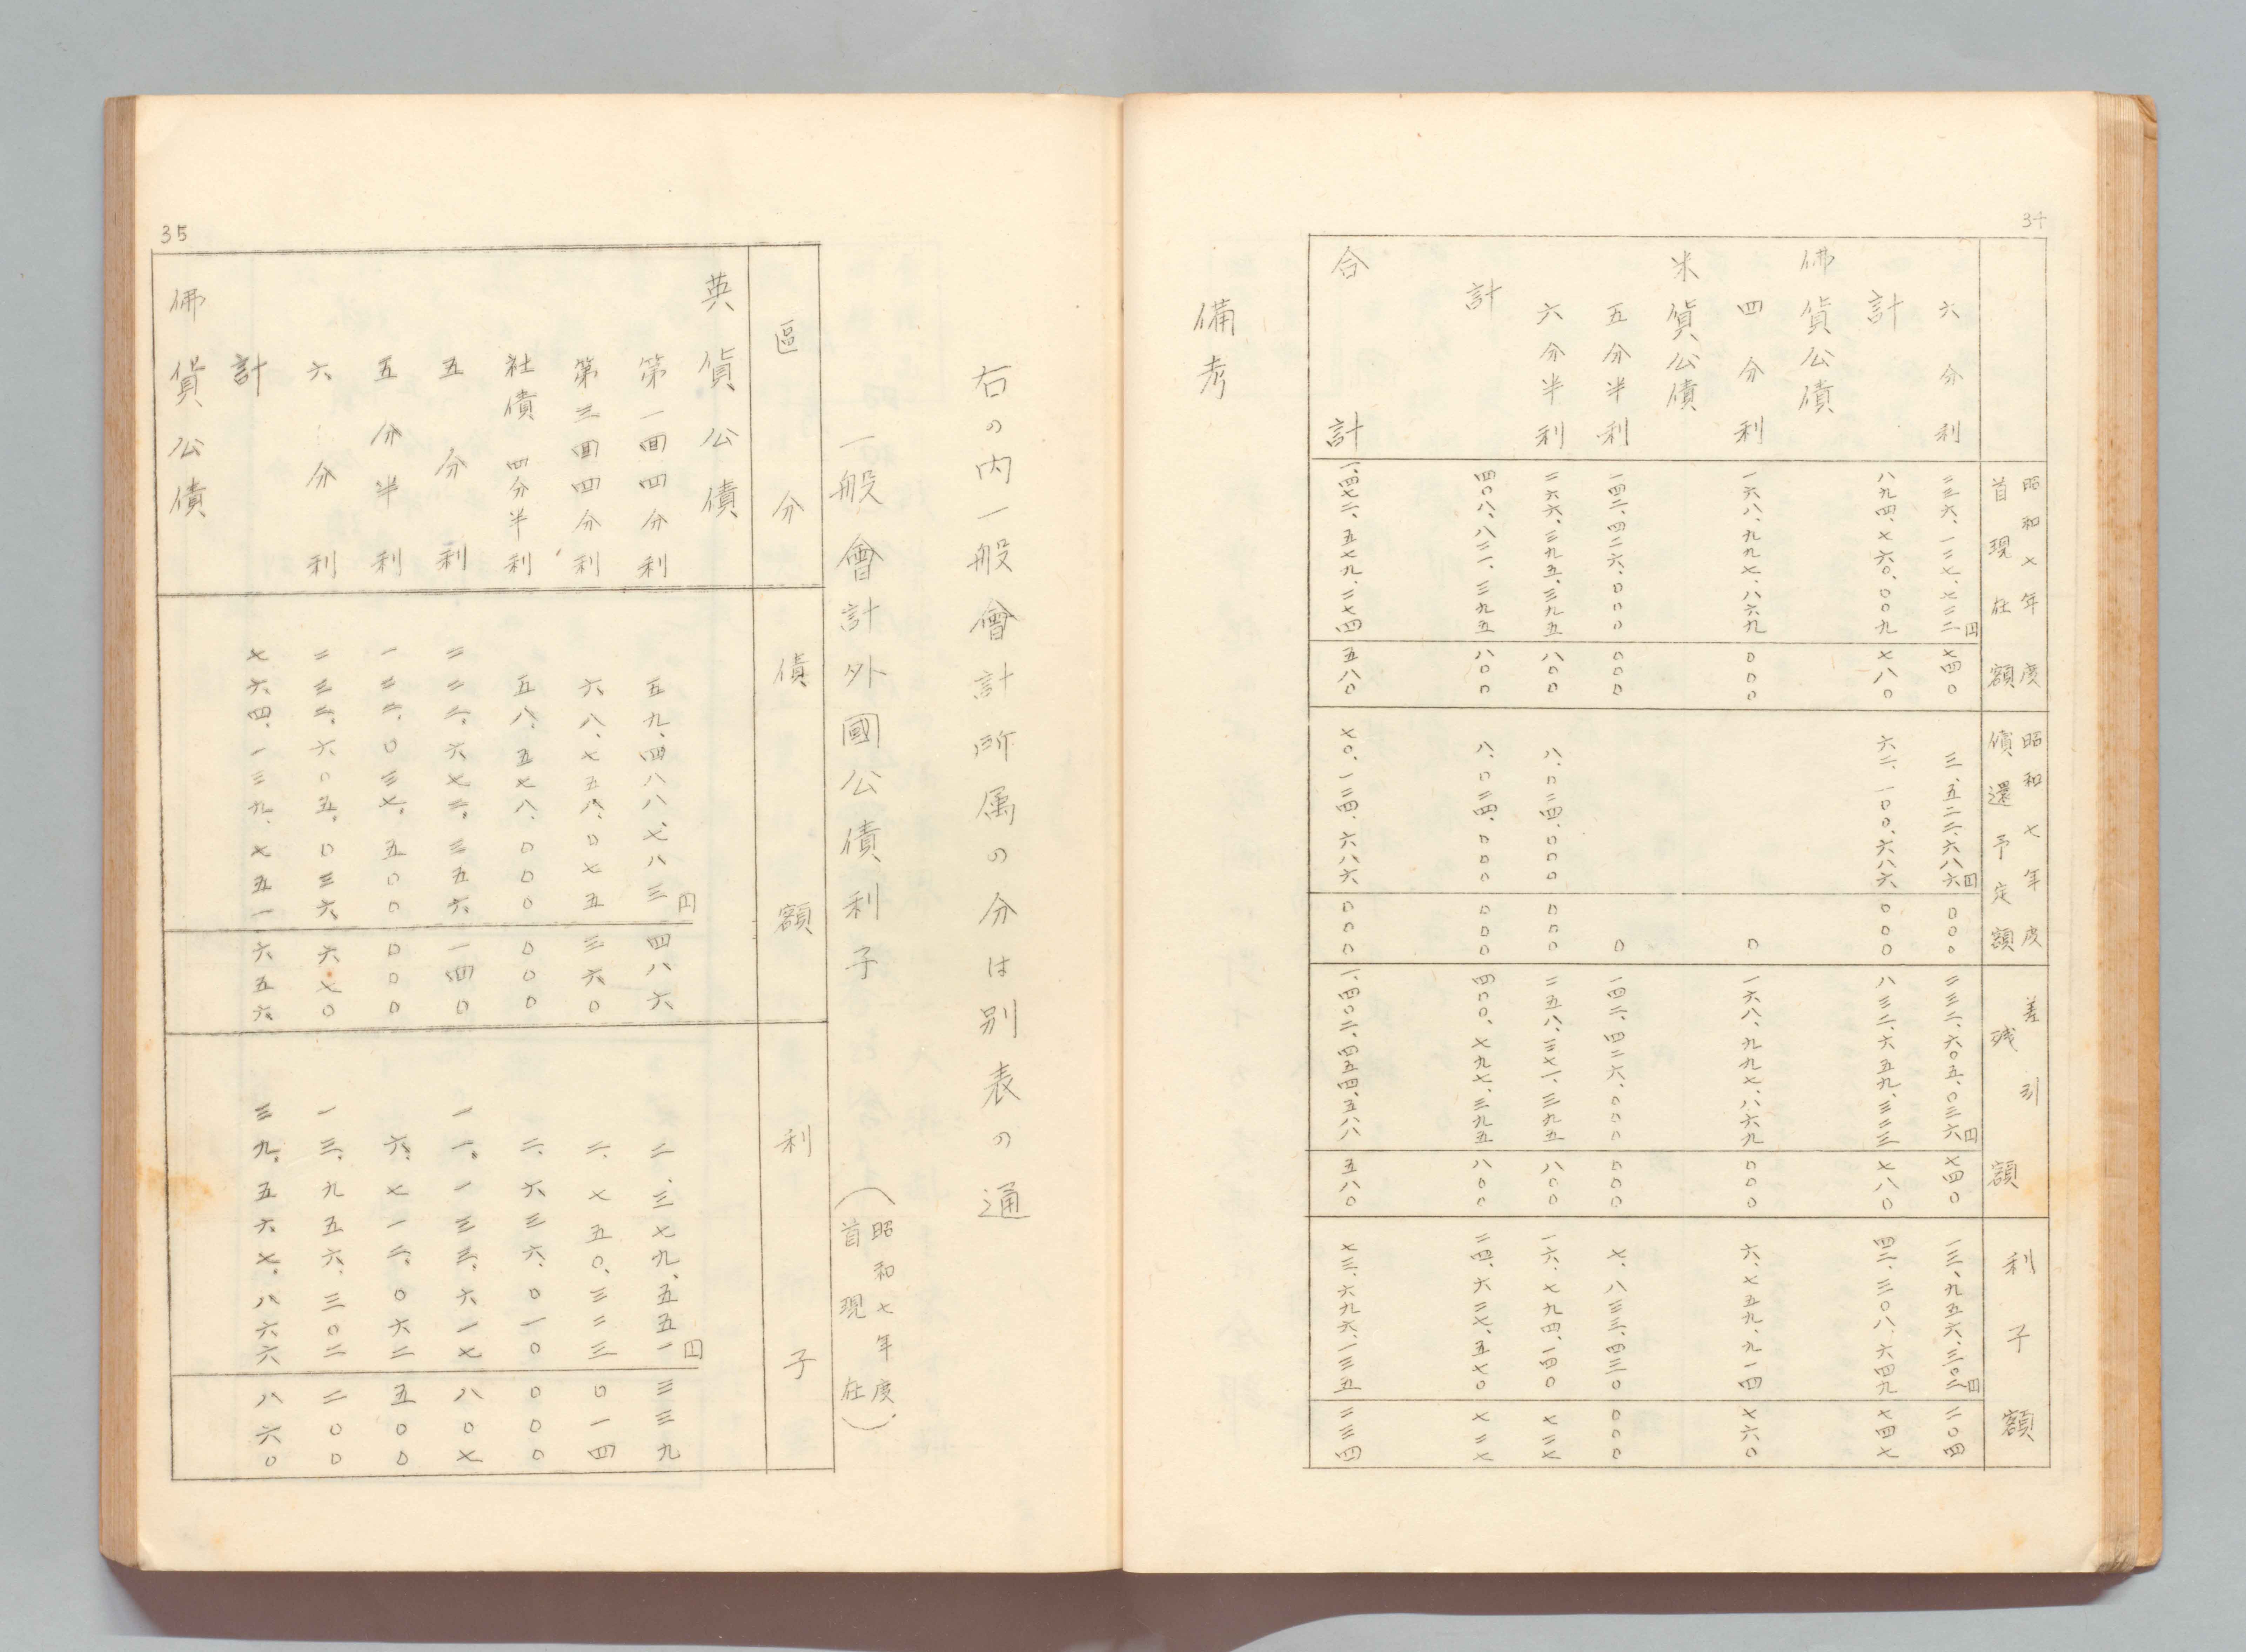 34
昭和七年度首現在額
昭和七年度償還予定額
差引残額
利子額
六分利 二三六、一二七、七二二円 七四〇 三、五二二、六八六円 〇〇〇 二三二、六〇五、〇三六円 七四〇 一三、九五六、三〇二円 二〇四
計 八九四、七六〇、〇〇九 七八〇 六二、一〇〇、六八六 〇〇〇 八三二、六五九、三二三 七八〇 四二、三〇八、六四九 七四七
佛貨公債
四分利 一六八、九九七、八六九 〇〇〇 〇 一六八、九九七、八六九 〇〇〇 六、七五九、九一四 七六〇
米貨公債
五分半利 一四二、四二六、〇〇〇 〇〇〇 〇 一四二、四二六、〇〇〇 〇〇〇 七、八三三、四三〇 〇〇〇
六分半利 二六六、三九五、三九五 八〇〇 八、〇二四、〇〇〇 〇〇〇 二五八、三七一、三九五 八〇〇 一六、七九四、一四〇 七二七
計 四〇八、八二一、三九五 八〇〇 八、〇二四、〇〇〇 〇〇〇 四〇〇、七九七、三九五 八〇〇 二四、六二七、五七〇 七二七
合計 一、四七二、五七九、二七四 五八〇 七〇、一二四、六八六 〇〇〇 一、四〇二、四五四、五八八 五八〇 七三、六九六、一三五 二三四
備考
右の内一般會計所属の分は別表の通
一般會計外國公債利子(昭和七年度首現在)
區分 債額 利子
英貨公債
第一回四分利 五九、四八八、七八三円 四八六 二、三七九、五五一円 三三九
第三回四分利 六八、七五八、〇七五 三六〇 二、七五〇、三二三 〇一四
社債四分半利 五八、五七八、〇〇〇 〇〇〇 二、六三六、〇一〇 〇〇〇
五分利 二二二、六七二、三五六 一四〇 一一、一三三、六一七 八〇七
五分半利 一二二、〇三七、五〇〇 〇〇〇 六、七一二、〇六二 五〇〇
六分利 二三二、六〇五、〇三六 六七〇 一三、九五六、三〇二 二〇〇
計 七六四、一三九、七五一 六五六 三九、五六七、八六六 八六〇
佛貨公債
35